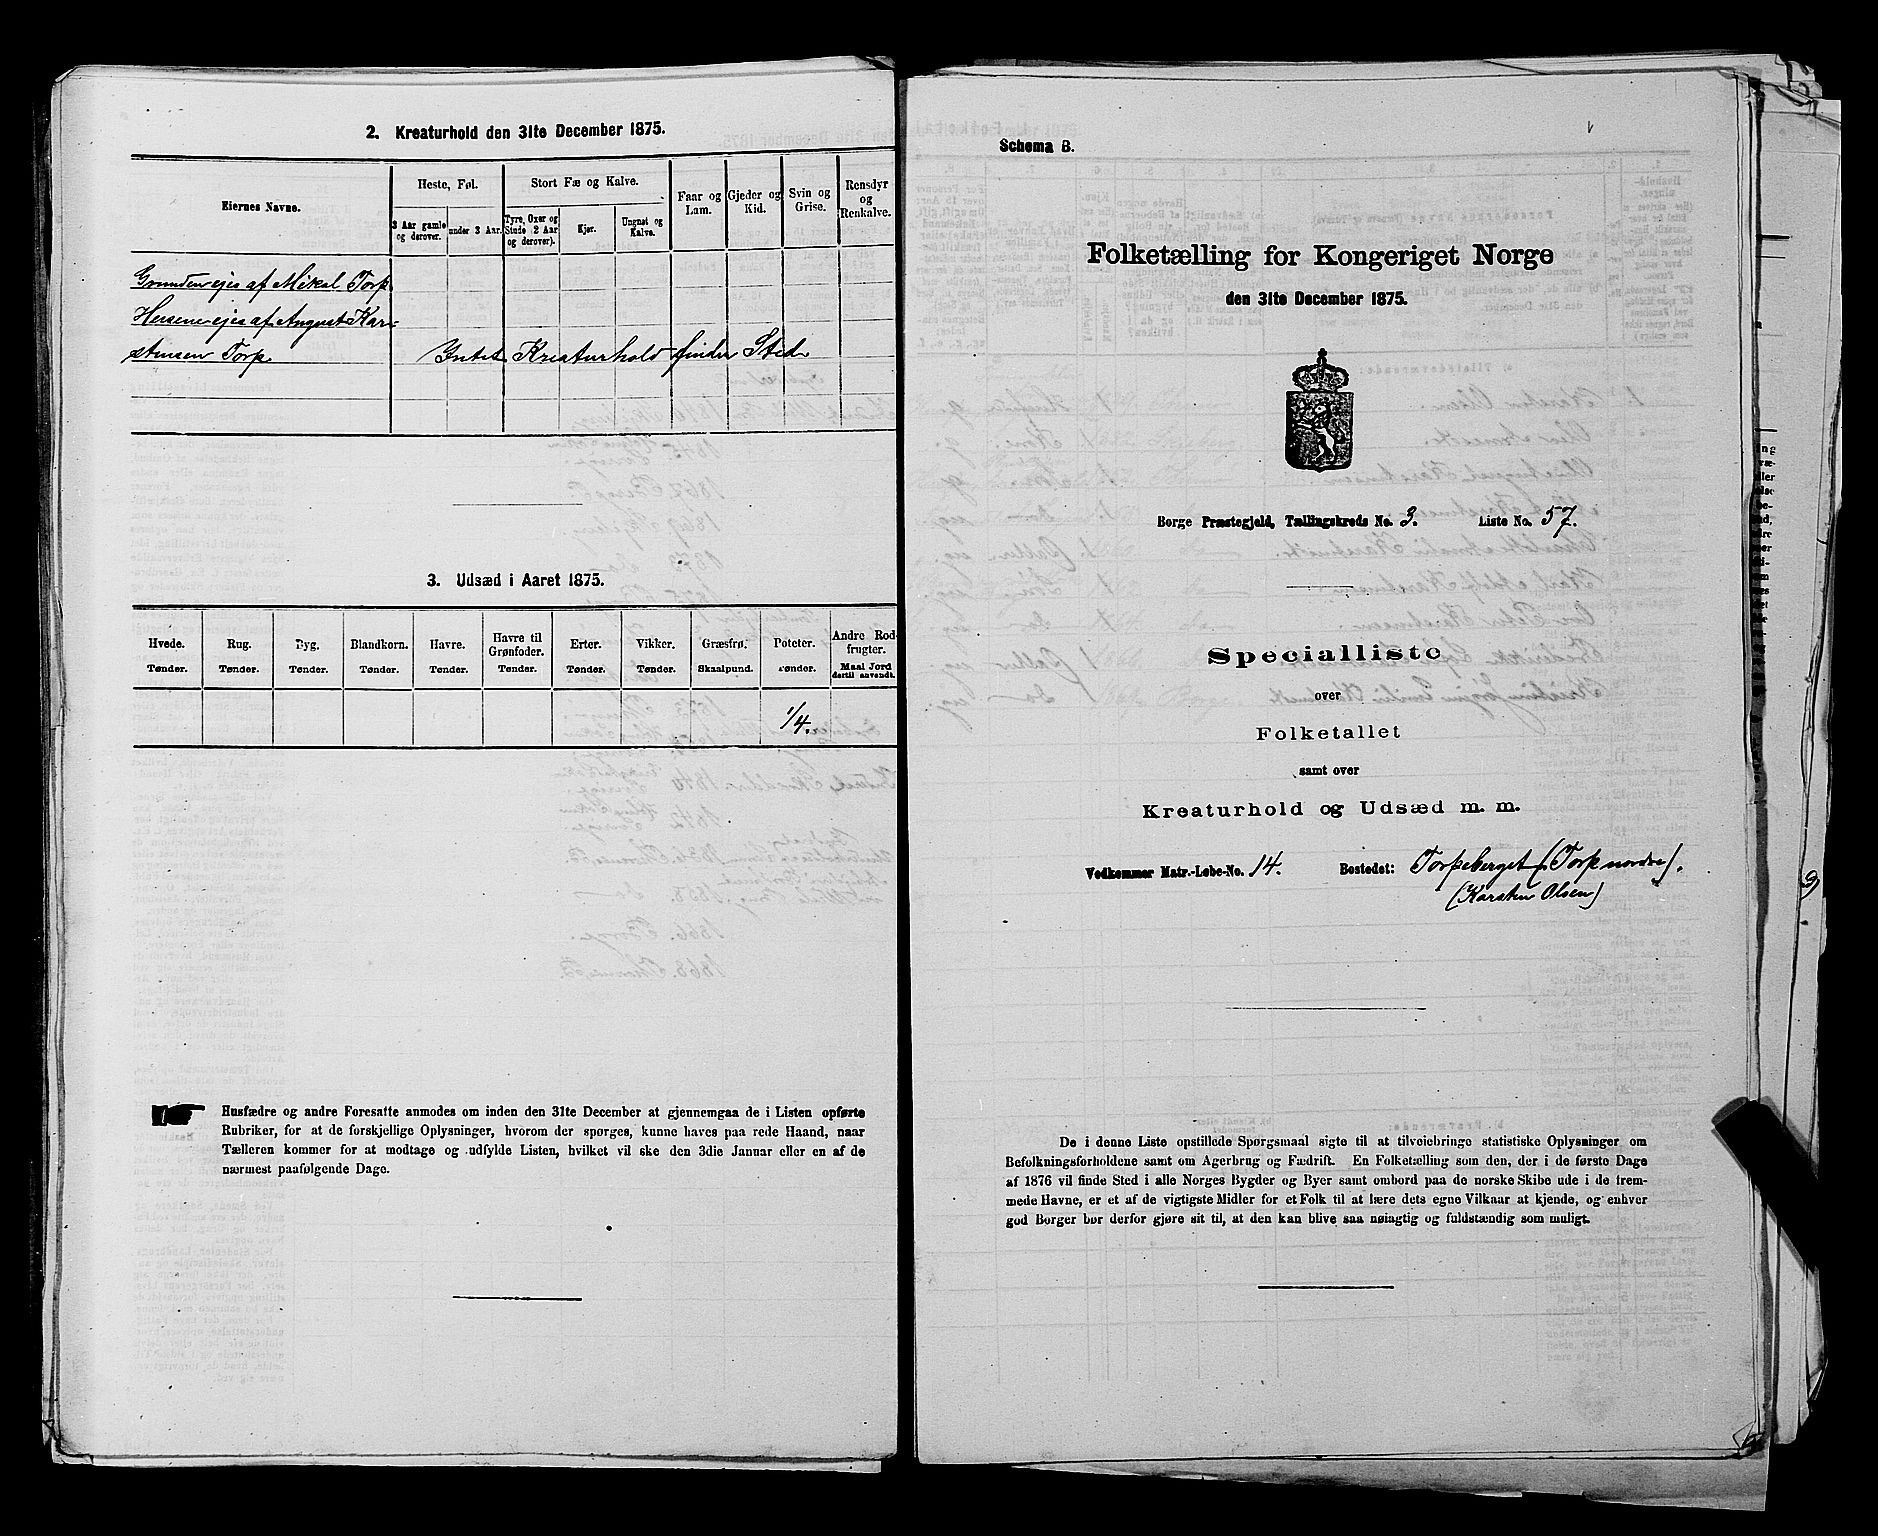 2. Kreaturhold den 31te December 1875.
Eiernes Navne.
Heste, Føl.
Stort Fæ og Kalve.
Faar og Lam.
Gjeder og Kid.
Svin og Grise.
Rensdyr og Renkalve.
3 Aar gamle og derover.
under 3 Aar.
Tyre, Oxer og Stude (2 Aar og derover).
Kjør.
Ungnøt og Kalve.
Grunden ejes af Mikal Torp
Husene ejes af August Kar-
stensen Torp Intet Kreaturhold finder Sted
3. Udsæd i Aaret 1875.
Hvede. Rug. Byg. Blandkorn. Havre. Havre til Grønfoder. Erter. Vikker. Græsfrø. Poteter. Andre Rodfrugter.
Tønder. Tønder. Tønder. Tønder. Tønder. Tønder. Tønder. Tønder. Skaalpund. Tønder. Maal Jord dertil anvendt.
1/4.
Husfædre og andre Foresatte anmodes om inden den 31te December at gjennemgaa de i Listen opførte
Rubriker, for at de forskjellige Oplysninger, hvorom der spørges, kunne haves paa rede Haand, naar
Tælleren kommer for at modtage og udfylde Listen, hvilket vil ske den 3die Januar eller en af de
nærmest paafølgende Dage.
Schema B.
Folketælling for Kongeriget Norge
den 31te December 1875.
Borge Præstegjeld, Tællingskreds No. 3. Liste No. 57.
Specialliste
over
Folketallet
samt over
Kreaturhold og Udsæd m. m.
Vedkommer Matr.-Løbe-No. 14. Bostedet: Torpeberget (Torp nordre).
(Karsten Olsen)
De i denne Liste opstillede Spørgsmaal sigte til at tilveiebringe statistiske Oplysninger om
Befolkningsforholdene samt om Agerbrug og Fædrift. En Folketælling som den, der i de første Dage
af 1876 vil finde Sted i alle Norges Bygder og Byer samt ombord paa de norske Skibe ude i de frem-
mede Havne, er et af de vigtigste Midler for et Folk til at lære dets egne Vilkaar at kjende, og enhver
god Borger bør derfor gjøre sit til, at den kan blive saa nøiagtig og fuldstændig som muligt.